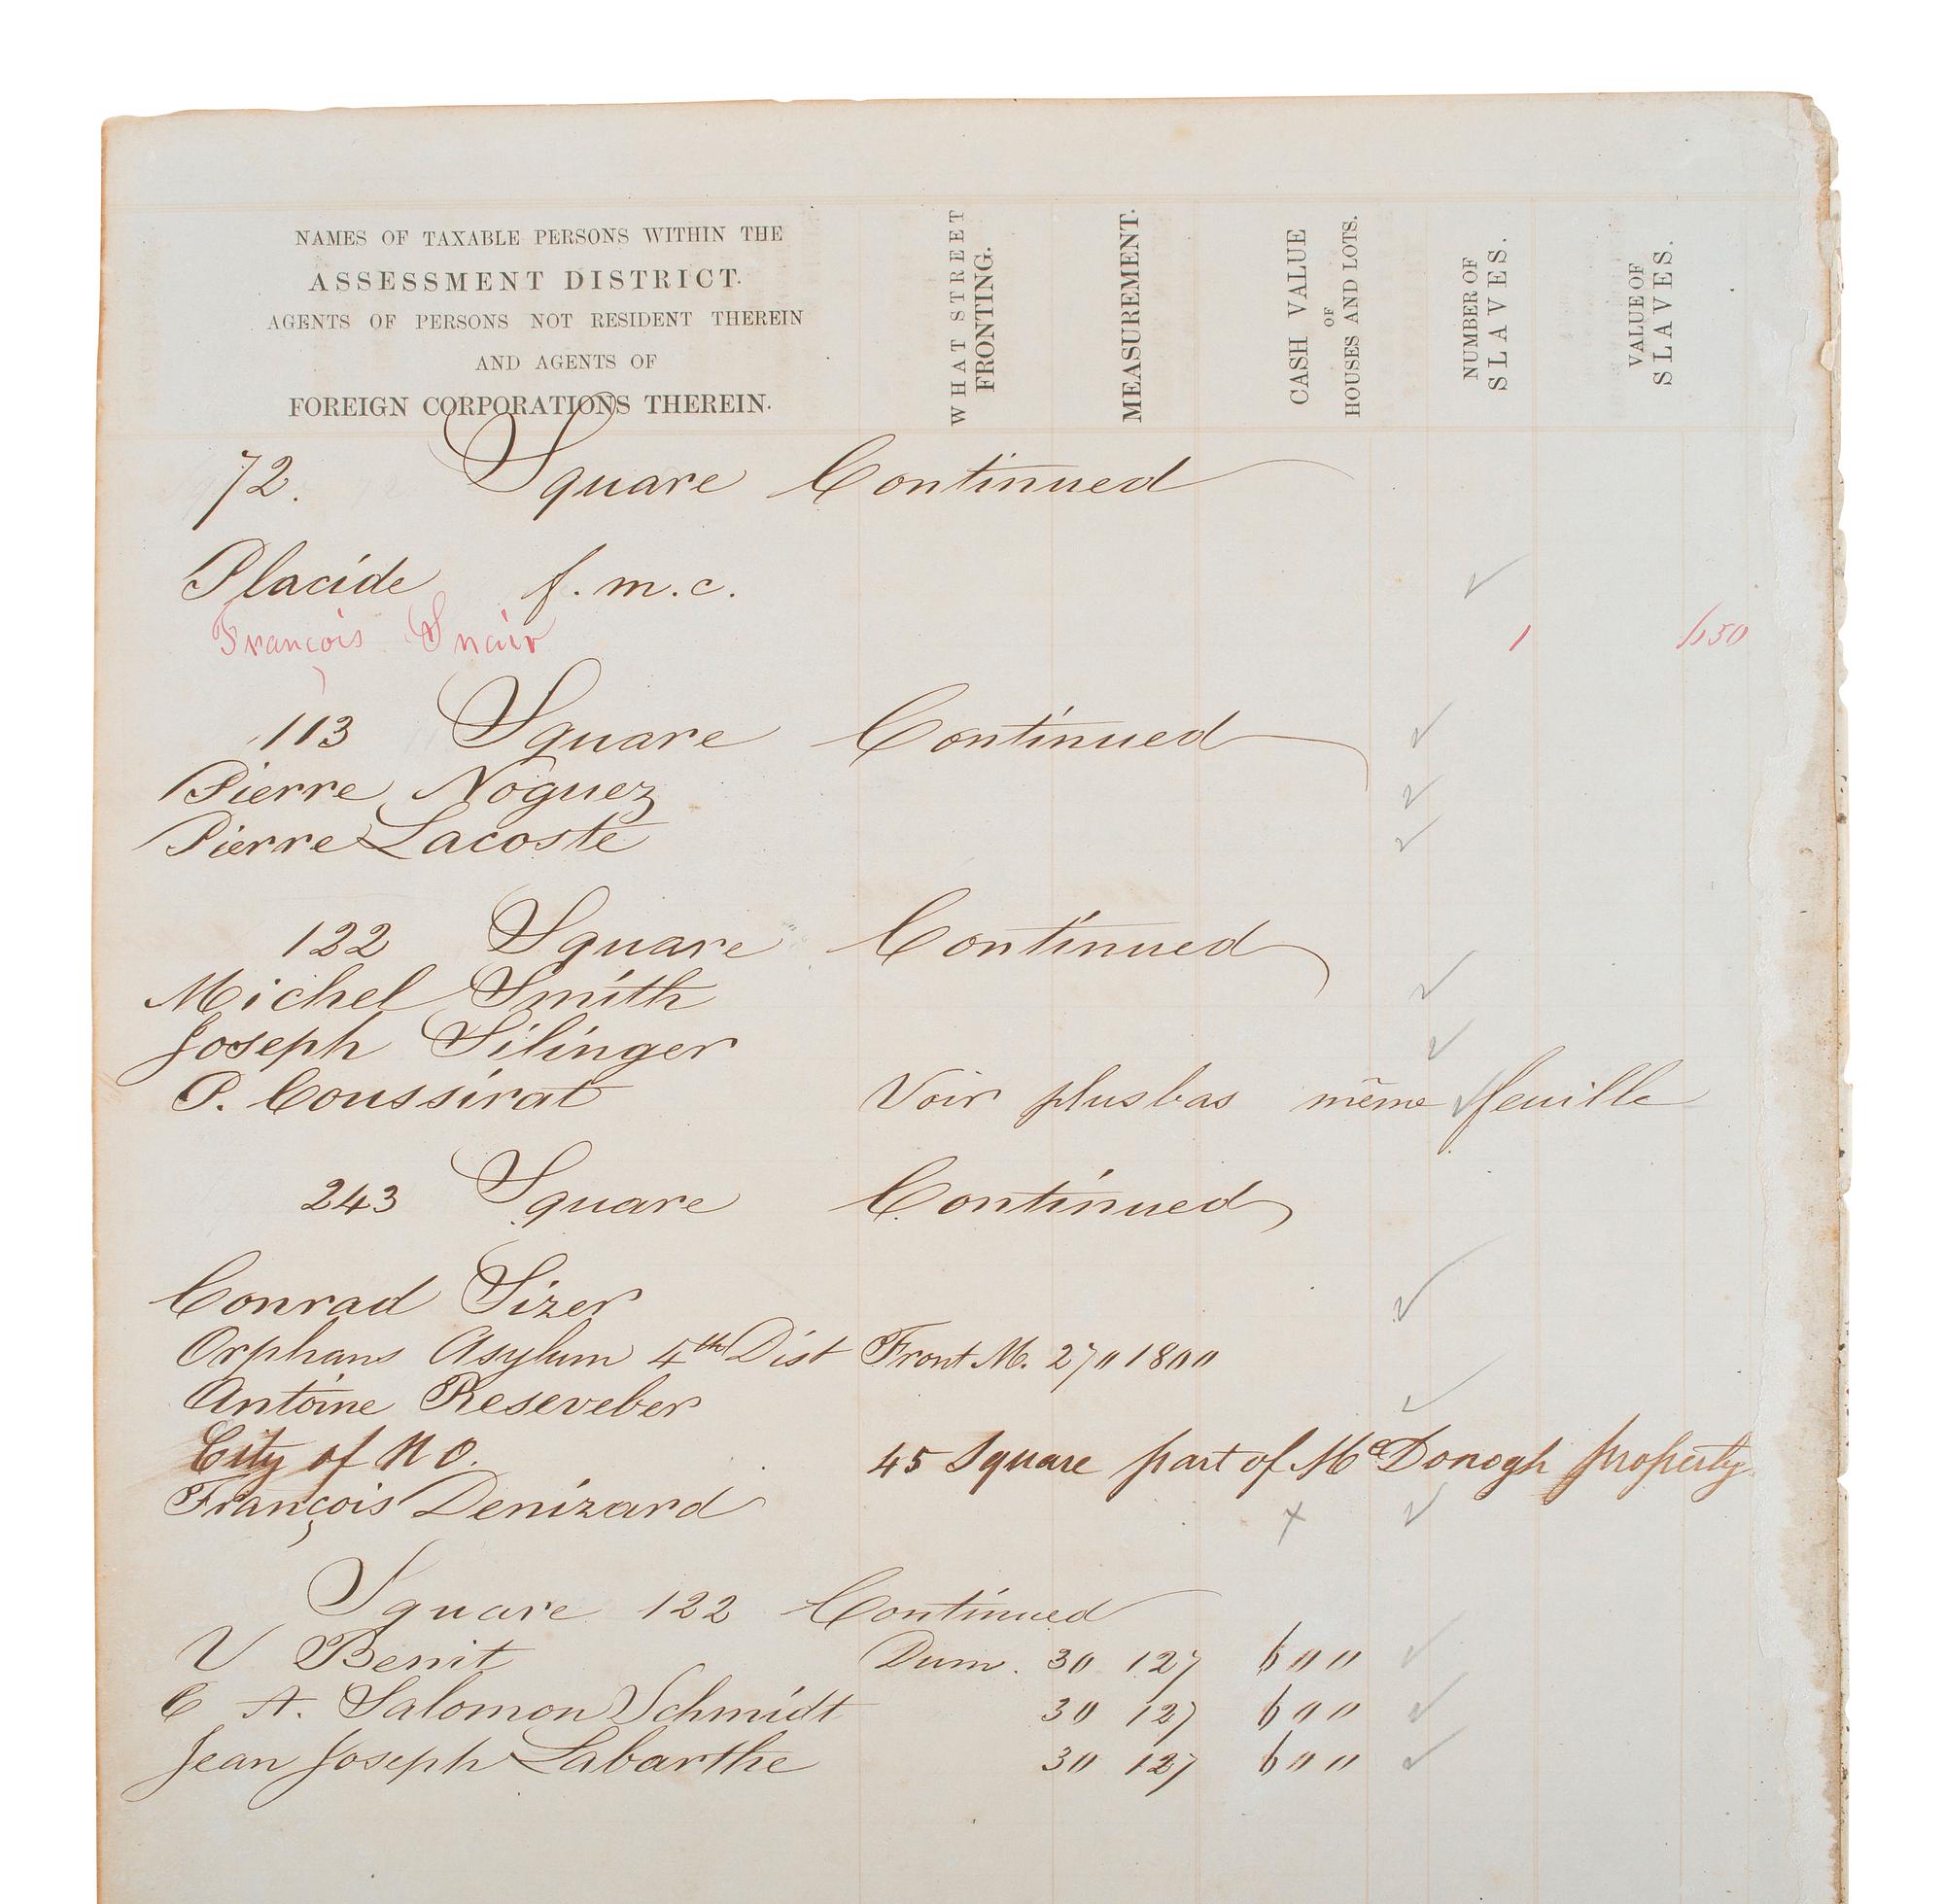 NAMES OF TAXABLE PERSONS WITHIN THE
ASSESSMENT DISTRICT.
AGENTS OF PERSONS NOT RESIDENT THEREIN
AND AGENTS OF
FOREIGN CORPORATIONS THEREIN.
WHAT STREET
FRONTING.
MEASUREMENT.
CASH VALUE
OF
HOUSES AND LOTS.
NUMBER OF
SLAVES.
VALUE OF
SLAVES.
72. Square Continued
Placide f.m.c.
François 1 650
113 Square Continued
Pierre Noguez
Pierre Lacoste
122 Square Continued
Michel Smith
Joseph Silinger
P. Coussirat Voir plus bas même feuille
243 Square Continued
Conrad Sizer
Orphans Asylum 4th Dist Front M. 270 1800
Antoine Reseveber
City of N O. 45 Square part of Mc Donogh property
François Denizard x
Square 122 Continued
V Benit Dum. 30 127 600
C A. Salomon Schmidt 30 127 600
Jean Joseph Labarthe 30 127 600